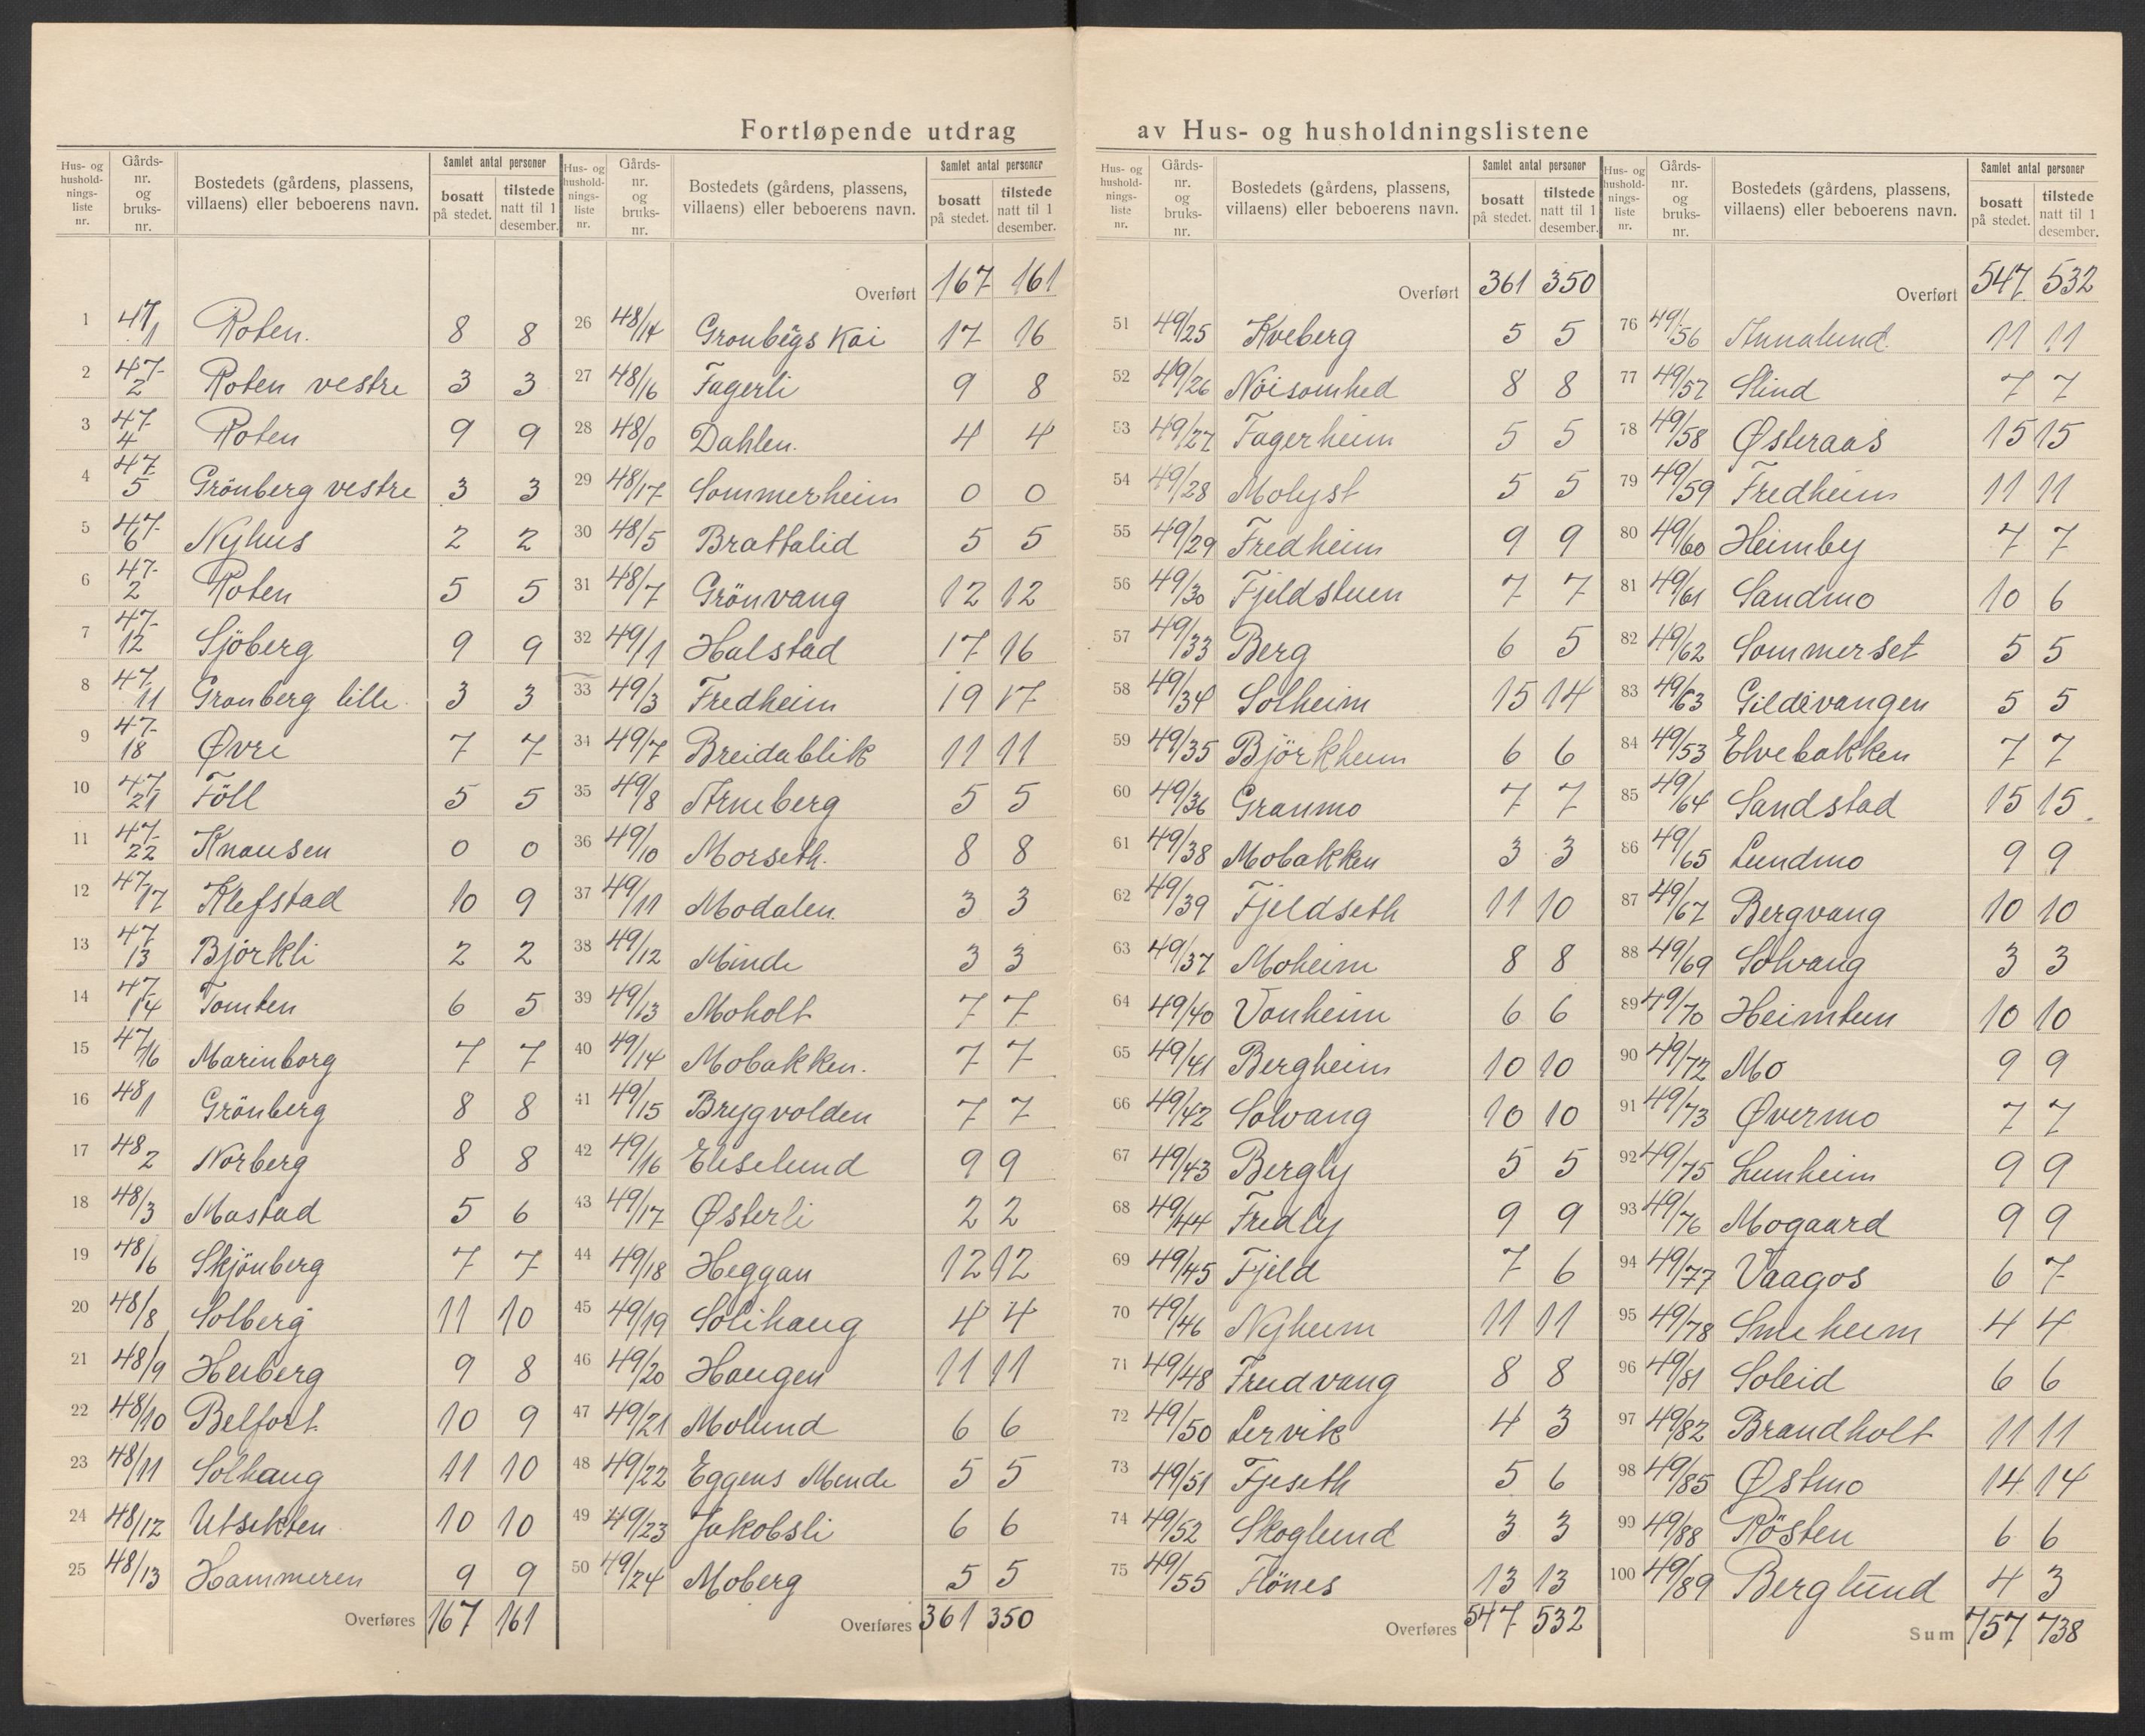 Fortløpende utdrag av Hus- og husholdningslistene
Hus- og husholdnings-liste nr. | Gårds-nr. og bruks-nr. | Bostedets (gårdens, plassens, villaens) eller beboerens navn. | Samlet antal personer bosatt på stedet. | tilstede natt til 1 desember.
1 47/1 Roten. 8 8
2 47-2 Roten vestre 3 3
3 47-4 Roten 9 9
4 47-5 Grönberg vestre 3 3
5 47-6 Nyhus 2 2
6 47-2 Roten 5 5
7 47-12 Sjöberg 9 9
8 47-11 Gronberg lille. 3 3
9 47-18 Øvre 7 7
10 47-21 Föll 5 5
11 47-22 Knausen 0 0
12 47/17 Klefstad 10 9
13 47-13 Björkli 2 2
14 47-14 Tomten 6 5
15 47/16 Marinborg 7 7
16 48/1 Grönberg 8 8
17 48/2 Norberg 8 8
18 48/3 Mastad 5 6
19 48/6 Skjönberg 7 7
20 48/8 Solberg 11 10
21 48/9 Heiberg 9 8
22 48/10 Belfort 10 9
23 48/11 Solhaug 11 10
24 48/12 Utsikten 10 10
25 48/13 Hammeren 9 9
Overføres 167 161
Hus- og husholdnings-liste nr. | Gårds-nr. og bruks-nr. | Bostedets (gårdens, plassens, villaens) eller beboerens navn. | Samlet antal personer bosatt på stedet. | tilstede natt til 1 desember.
Overført 167 161
26 48/14 Gronbergs Kai 17 16
27 48/16 Fagerli 9 8
28 48/0 Dahlen. 4 4
29 48/17 Sommerheim 0 0
30 48/5 Brattalid 5 5
31 48/7 Grönvang 12 12
32 49/1 Halstad 17 16
33 49/3 Fredheim 19 17
34 49/7 Breidablik 11 11
35 49/8 Arneberg 5 5
36 49/10 Morseth. 8 8
37 49/11 Modalen. 3 3
38 49/12 Minde 3 3
39 49/13 Moholt 7 7
40 49/14 Mobakken. 7 7
41 49/15 Brygvolden 7 7
42 49/16 Eliselund 9 9
43 49/17 Østerli 2 2
44 49/18 Heggan 12 12
45 49/19 Solihaug 4 4
46 49/20 Haugen 11 11
47 49/21 Molund 6 6
48 49/22 Eggens Minde 5 5
49 49/23 Jakobsli 6 6
50 49/24 Moberg 5 5
Overføres 361 350
Hus- og husholdnings-liste nr. | Gårds-nr. og bruks-nr. | Bostedets (gårdens, plassens, villaens) eller beboerens navn. | Samlet antal personer bosatt på stedet. | tilstede natt til 1 desember.
Overført 361 350
51 49/25 Kveberg 5 5
52 49/26 Noisomhed 8 8
53 49/27 Fagerheim 5 5
54 49/28 Molyst 5 5
55 49/29 Fredheim 9 9
56 49/30 Fjeldstuen 7 7
57 49/33 Berg 6 5
58 49/34 Solheim 15 14
59 49/35 Björkheim 6 6
60 49/36 Granmo 7 7
61 49/38 Mobakken 3 3
62 49/39 Fjeldseth 11 10
63 49/37 Moheim 8 8
64 49/40 Vonheim 6 6
65 49/41 Bergheim 10 10
66 49/42 Solvang 10 10
67 49/43 Bergly 5 5
68 49/44 Fredly 9 9
69 49/45 Fjeld 7 6
70 49/46 Nyheim 11 11
71 49/48 Fredvang 8 8
72 49/50 Lervik 4 3
73 49/51 Fjeseth 5 6
74 49/52 Skoglund 3 3
75 49/55 Flönes 13 13
Overføres 547 532
Hus- og husholdnings-liste nr. | Gårds-nr. og bruks-nr. | Bostedets (gårdens, plassens, villaens) eller beboerens navn. | Samlet antal personer bosatt på stedet. | tilstede natt til 1 desember.
Overført 547 532
76 49/56 Annalund 11 11
77 49/57 Slind 7 7
78 49/58 Østeraas 15 15
79 49/59 Fredheim 11 11
80 49/60 Heimby 7 7
81 49/61 Sandmo 10 6
82 49/62 Sommerset 5 5
83 49/63 Gildevangen 5 5
84 49/53 Elvebakken 7 7
85 49/64 Sandstad 15 15
86 49/65 Lundmo 9 9
87 49/67 Bergvang 10 10
88 49/69 Solvang 3 3
89 49/70 Heimtun 10 10
90 49/72 Mo 9 9
91 49/73 Øvermo 7 7
92 49/75 Lunheim 9 9
93 49/76 Mogaard 9 9
94 49/77 Vaagos 6 7
95 49/78 Smeheim 4 4
96 49/81 Soleid 6 6
97 49/82 Brandholt 11 11
98 49/85 Østmo 14 14
99 49/88 Rösten 6 6
100 49/89 Berglund 4 3
Sum 757 738